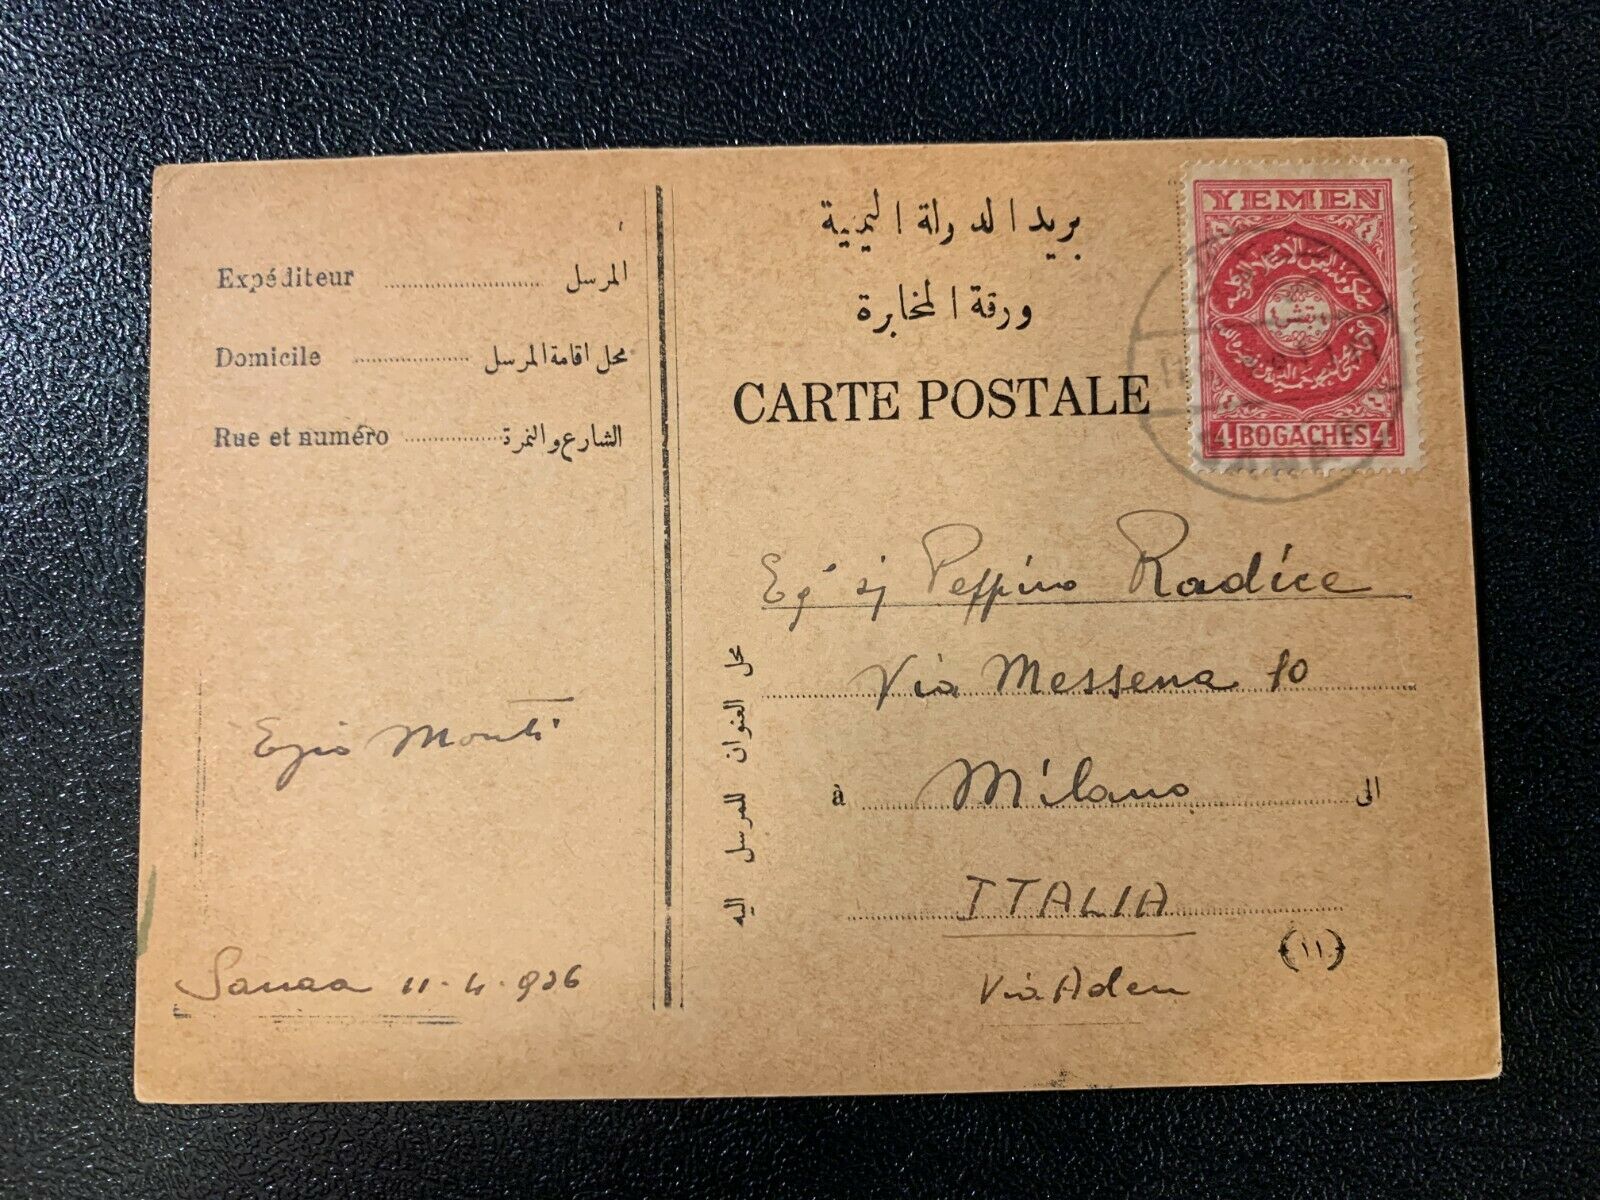 Expéditeur ........................ المرسل
Domicile .................. محل اقامة المرسل
Rue et numéro ............... الشارع والنمرة
Ezio Monti
Sanaa 11-4-936
بريد الدولة اليمنية
ورقة المخابرة
CARTE POSTALE
YEMEN
بقش
4 BOGACHES 4
Peppino Radice
Via Messena 10
à Milano الى
ITALIA
Via Aden
محل العنوان للمرسل اليه
(١١)